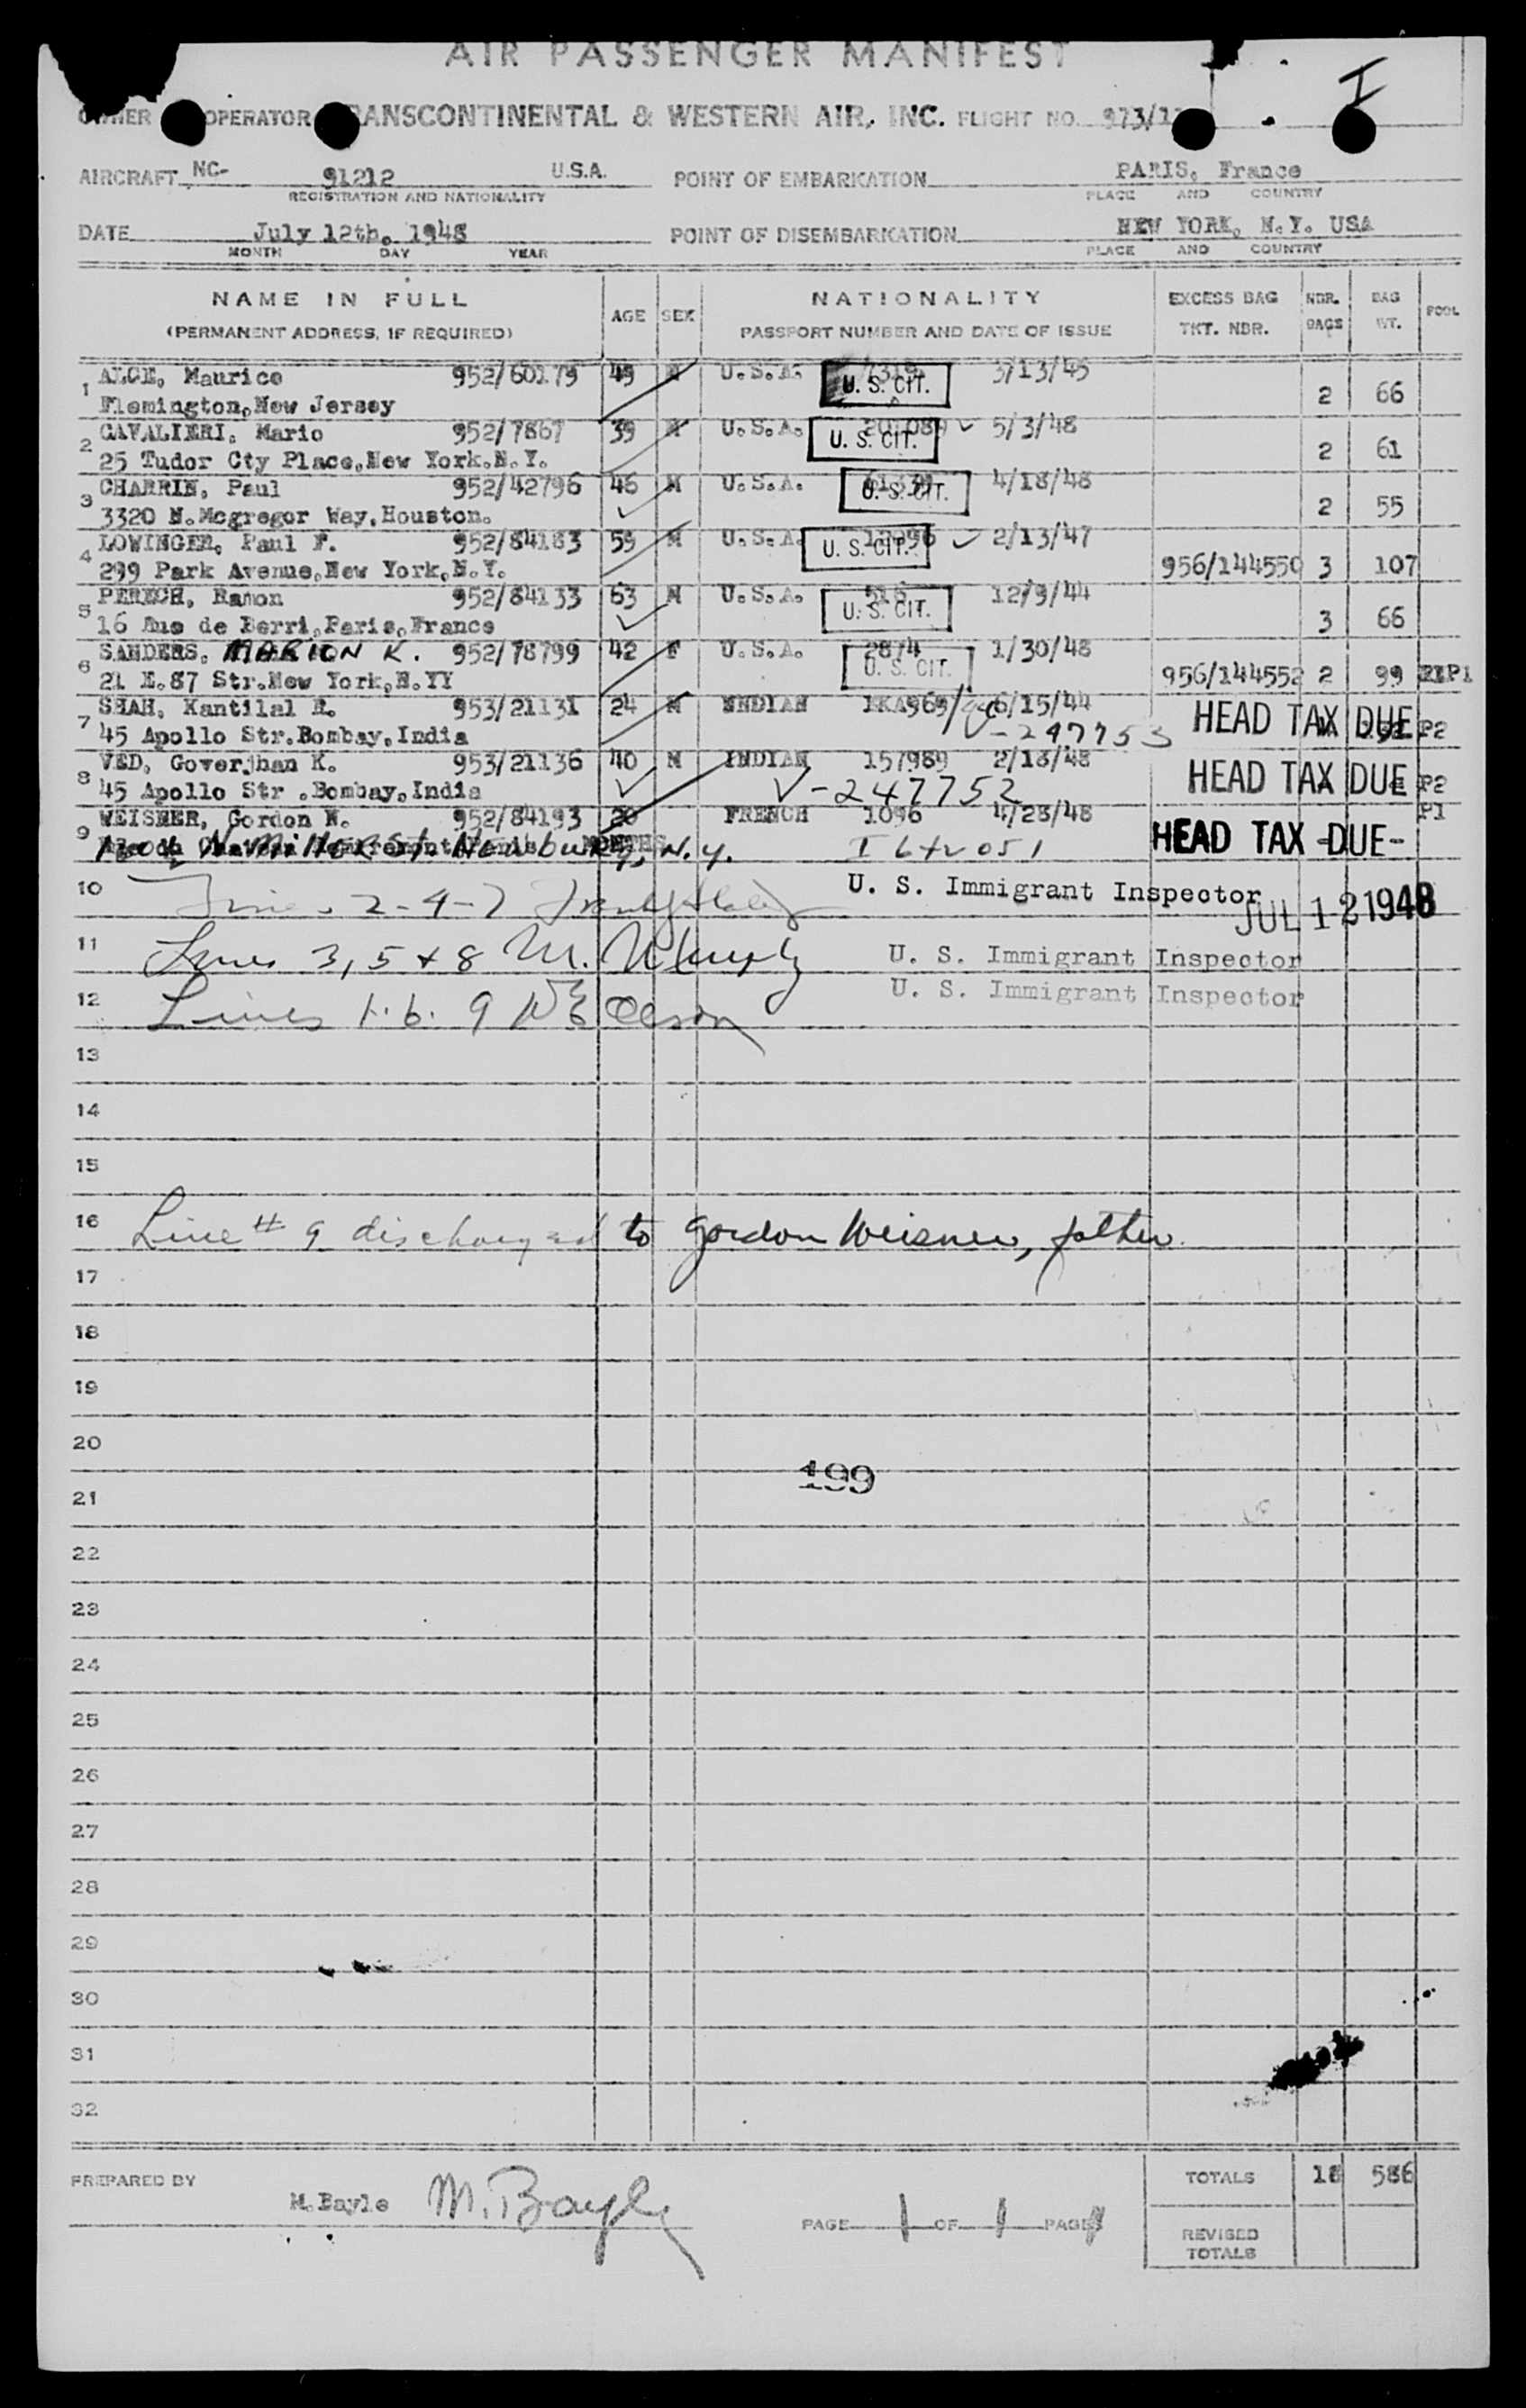 AIR PASSENGER MANIFEST
OPERATOR RANSCONTINENTAL & WESTERN AIR, INC. FLIGHT NO. 973/1
I
AIRCRAFT NC- 91212 U.S.A. POINT OF EMBARKATION PARIS, France
REGISTRATION AND NATIONALITY PLACE AND COUNTRY
DATE July 12th, 1948 POINT OF DISEMBARKATION NEW YORK, N.Y. USA
MONTH DAY YEAR PLACE AND COUNTRY
NAME IN FULL AGE SEX NATIONALITY EXCESS BAG NBR. BAG POOL
(PERMANENT ADDRESS, IF REQUIRED) PASSPORT NUMBER AND DATE OF ISSUE TKT. NBR. BAGS WT.
1 ALCE, Maurice 952/60179 49 M U.S.A. U. S. CIT. 3/13/45
Flemington, New Jersey 2 66
2 CAVALIERI, Mario 952/7867 39 M U.S.A. U. S. CIT. 5/3/48
25 Tudor Cty Place, New York. N.Y. 2 61
3 CHARRIN, Paul 952/42796 46 M U.S.A. U. S. CIT. 4/18/48
3320 N. Mcgregor Way, Houston. 2 55
4 LOWINGER, Paul F. 952/84183 59 M U.S.A. U. S. CIT. 2/13/47
299 Park Avenue, New York, N.Y. 956/144550 3 107
5 PERECH, Ramon 952/84133 63 M U.S.A. 518 U. S. CIT. 12/9/44
16 Rue de Berri, Paris, France 3 66
6 SANDERS, MARION K. 952/78799 42 F U.S.A. 2874 U. S. CIT. 1/30/48
21 E. 87 Str. New York, N.YY 956/144552 2 99 P1
7 SHAH, Kantilal H. 953/21131 24 M INDIAN 6/15/44
45 Apollo Str. Bombay, India -247753 HEAD TAX DUE P2
8 VED, Goverjhan K. 953/21136 40 M INDIAN 157989 2/18/48
45 Apollo Str . Bombay, India V-247752 HEAD TAX DUE P2
9 WEISNER, Gordon N. 952/84193 20 FRENCH 1096 4/28/48 P1
N. Miller St. Newburg, N.Y. MONTHS HEAD TAX DUE
10 2-4-7 U. S. Immigrant Inspector JUL 12 1948
11 Lines 3, 5 + 8 M. U. S. Immigrant Inspector
12 Lines 1. 6. 9 WE Olson U. S. Immigrant Inspector
13
14
15
16 Line # 9 discharged to Gordon Weisner, father.
17
18
19
20
199
21
22
23
24
25
26
27
28
29
30
31
32
PREPARED BY M. Bayle M. Bayle PAGE 1 OF 1 PAGES
TOTALS 18 586
REVISED
TOTALS